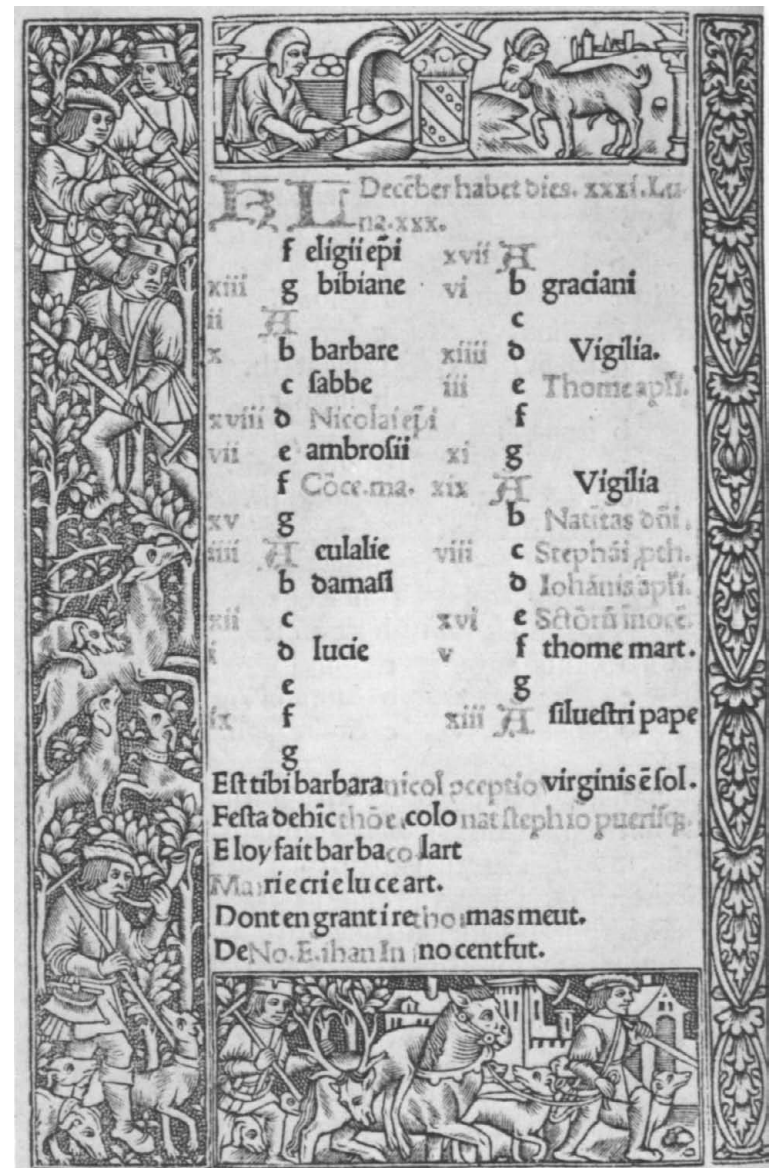 KL Decẽber habet dies. xxxi. Lu-
na. xxx.
f eligii ep̃i
xiii g bibiane
ii A
x b barbare
c sabbe
xviii d Nicolai ep̃i
vii e ambrosii
f Cõce. ma.
xv g
iiii A eulalie
b damasi
xii c
i d lucie
e
ix f
g
xvii A
vi b graciani
c
xiiii d Vigilia.
iii e Thome apl̃i.
f
xi g
xix A Vigilia
b Natĩtas dñi.
viii c Stephãi pth.
d Iohãnis apl̃i.
xvi e Sctõrũ inocẽ.
v f thome mart.
g
xiii A silvestri pape
Est tibi barbara nicol pceptio virginis ẽ sol.
Festa dehĩc thõe colo nat steph io pueriſq;
Eloy fait bar ba co lart
Ma rie crie lu ce art.
Dont en grant i re tho mas meut.
De No. E. ihan In no cent fut.